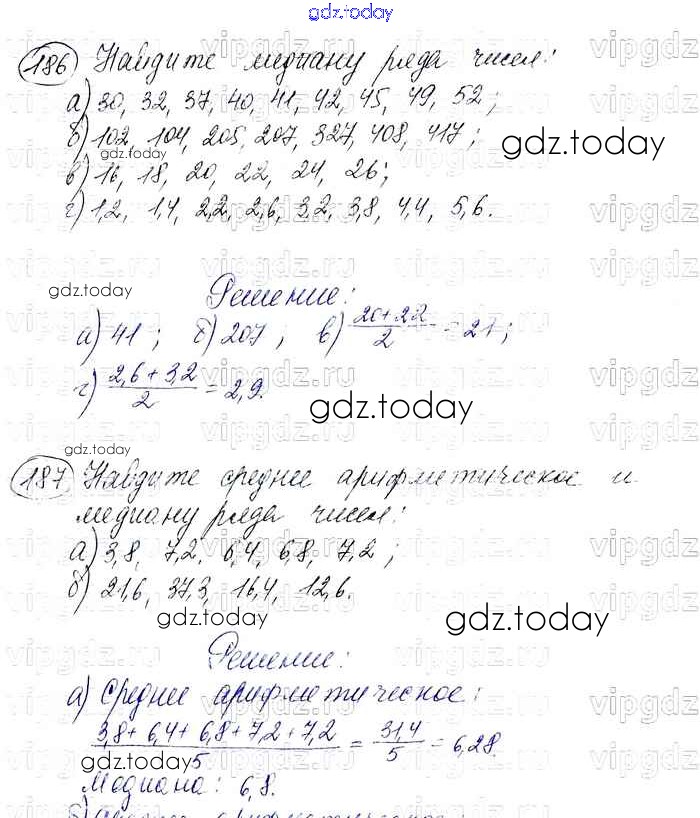 gdz.today
186 Найдите медиану ряда чисел:
а) 30, 32, 37, 40, 41, 42, 45, 49, 52;
б) 102, 104, 205, 207, 327, 408, 417;
gdz.today
gdz.today
в) 16, 18, 20, 22, 24, 26;
г) 1,2, 1,4, 2,2, 2,6, 3,2, 3,8, 4,4, 5,6.
gdz.today
Решение:
а) 41; б) 207; в) (20+22)/2 = 21;
г) (2,6+3,2)/2 = 2,9.
gdz.today
gdz.today
187 Найдите среднее арифметическое и
медиану ряда чисел:
а) 3,8, 7,2, 6,4, 6,8, 7,2;
б) 21,6, 37,3, 16,4, 12,6.
gdz.today
gdz.today
Решение:
а) Среднее арифметическое:
(3,8+6,4+6,8+7,2+7,2)/5 = 31,4/5 = 6,28.
gdz.today
Медиана: 6,8.